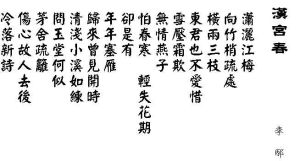 漢宮春
李邴
瀟灑江梅
向竹梢疏處
橫兩三枝
東君也不愛惜
雪壓霜欺
無情燕子
怕春寒 輕失花期
卻是有
年年塞雁
歸來曾見開時
清淺小溪如練
問玉堂何似
茅舍疏籬
傷心故人去後
冷落新詩